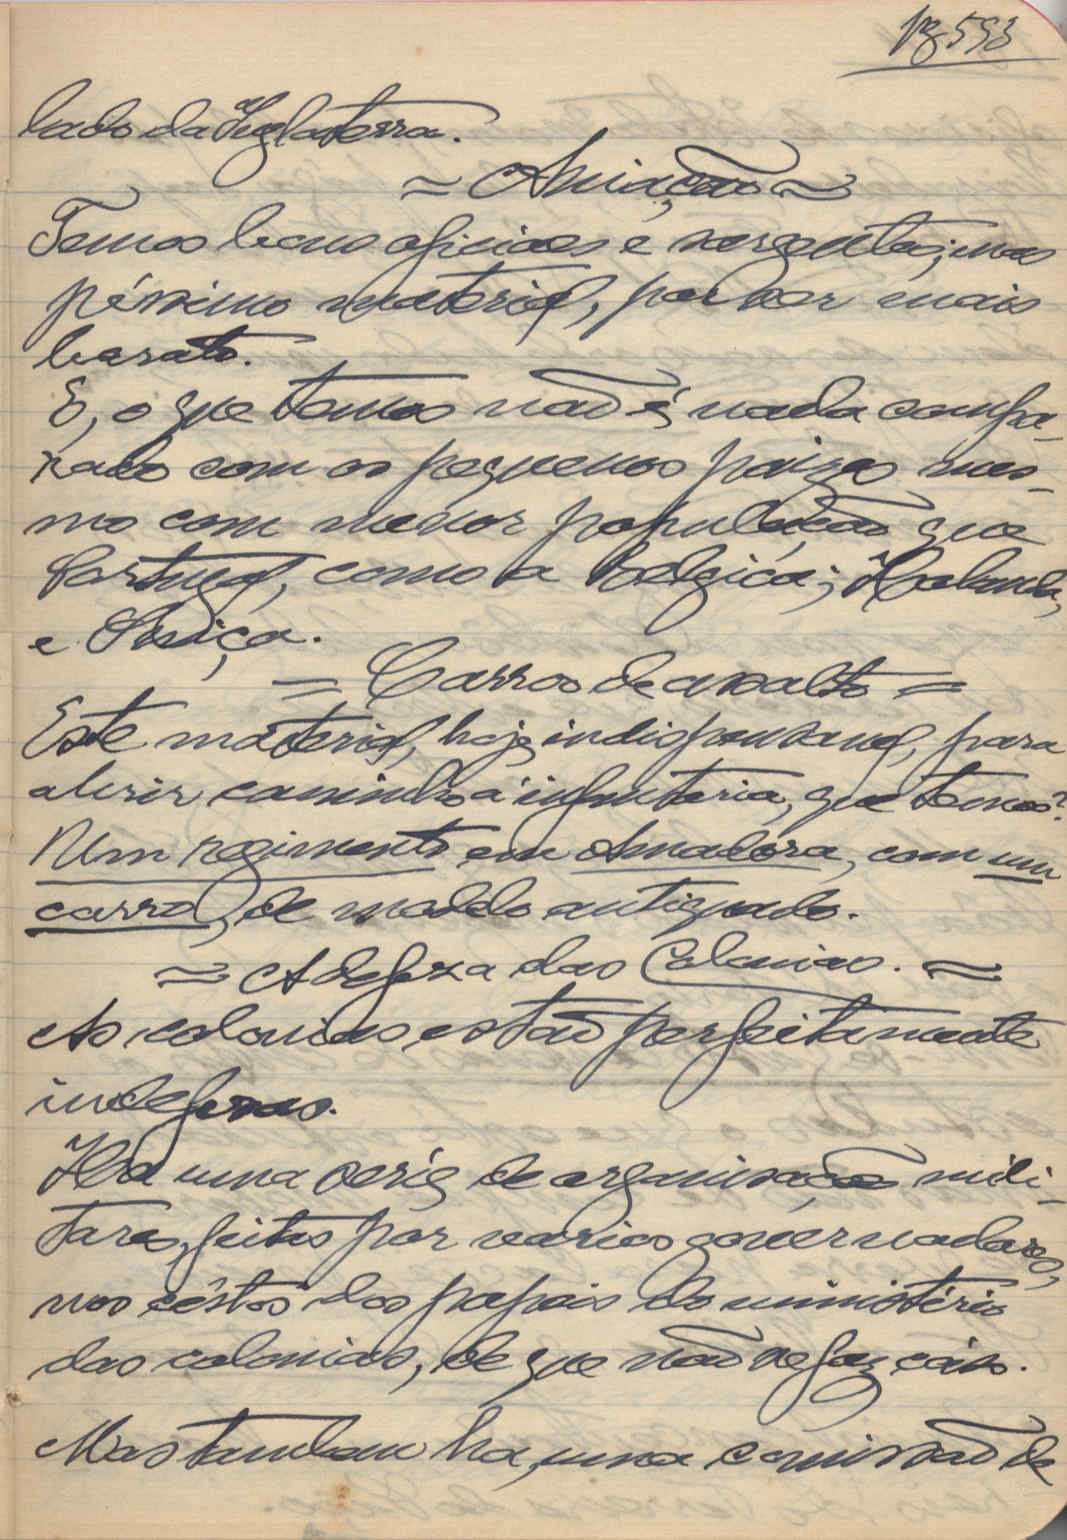 Pg 593
lado da Inglaterra.
= Aviação =
Temos bons oficiaes e sargentos; mas
péssimo material, por ser mais
barato.
E, o que temos não é nada compa-
rado com os pequenos paizes mes-
mo com menor população que
Portugal, como a Belgica; Holanda,
e Suiça.
= Carros de assalto =
Este material, hoje indispensavel, para
abrir caminho á infantaria, que temos?
Um regimento em Amadora, com um
carro, de modelo antiquado.
= A defeza das Colonias. =
As colonias estão perfeitamente
indefezas.
Ha uma série de organisação mili-
tares, feitas por varios governadores,
nos cêstos dos papeis do ministério
das colonias, de que não se faz cáso.
Mas tambem ha, uma comissão de